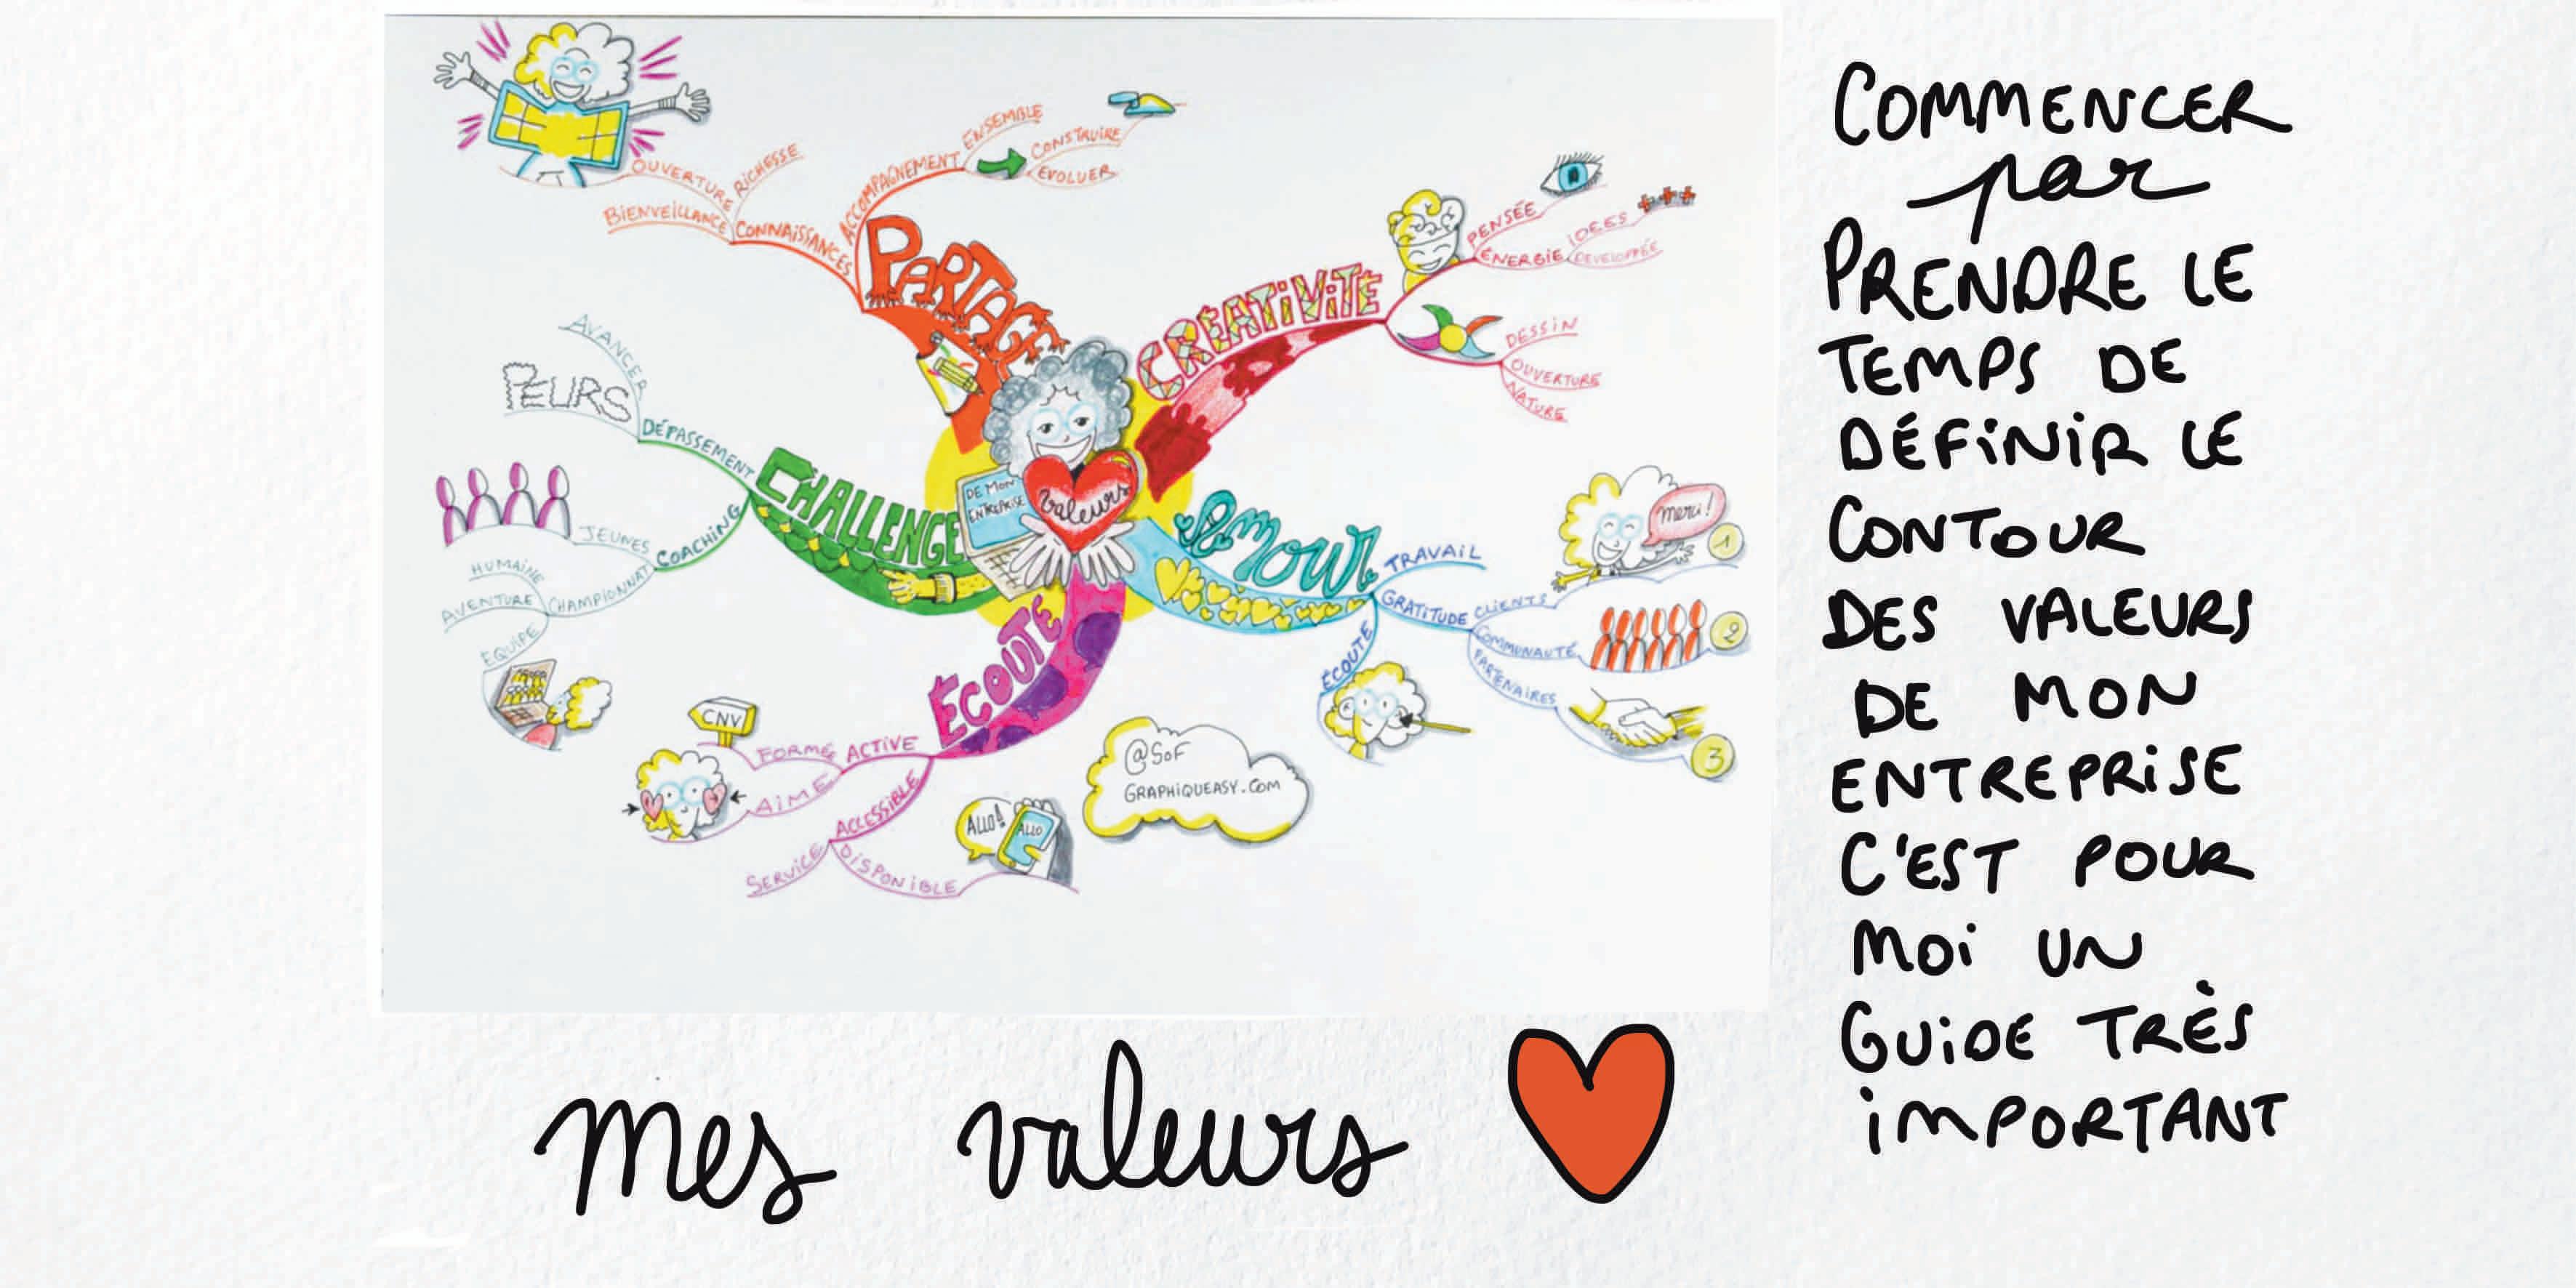 OUVERTURE
RICHESSE
BIENVEILLANCE
CONNAISSANCES
ACCOMPAGNEMENT
ENSEMBLE
CONSTRUIRE
EVOLUER
PARTAGE
CRÉATIVITÉ
PENSÉE
ÉNERGIE
IDEES
DEVELOPPÉE
DESSIN
OUVERTURE
NATURE
AVANCER
PEURS
DÉPASSEMENT
CHALLENGE
COACHING
JEUNES
CHAMPIONNAT
HUMAINE
AVENTURE
EQUIPE
DE MON
ENTREPRISE
Valeurs
Amour
TRAVAIL
GRATITUDE
CLIENTS
merci!
1
COMMUNAUTÉ
2
PARTENAIRES
3
ÉCOUTE
ÉCOUTE
CNV
FORMÉE
ACTIVE
AIME
ACCESSIBLE
SERVICE
DISPONIBLE
ALLO!
ALLO
@SOF
GRAPHIQUEASY.COM
mes valeurs
COMMENCER
par
PRENDRE LE
TEMPS DE
DÉFINIR LE
CONTOUR
DES VALEURS
DE MON
ENTREPRISE
C'EST POUR
MOI UN
GUIDE TRÈS
IMPORTANT